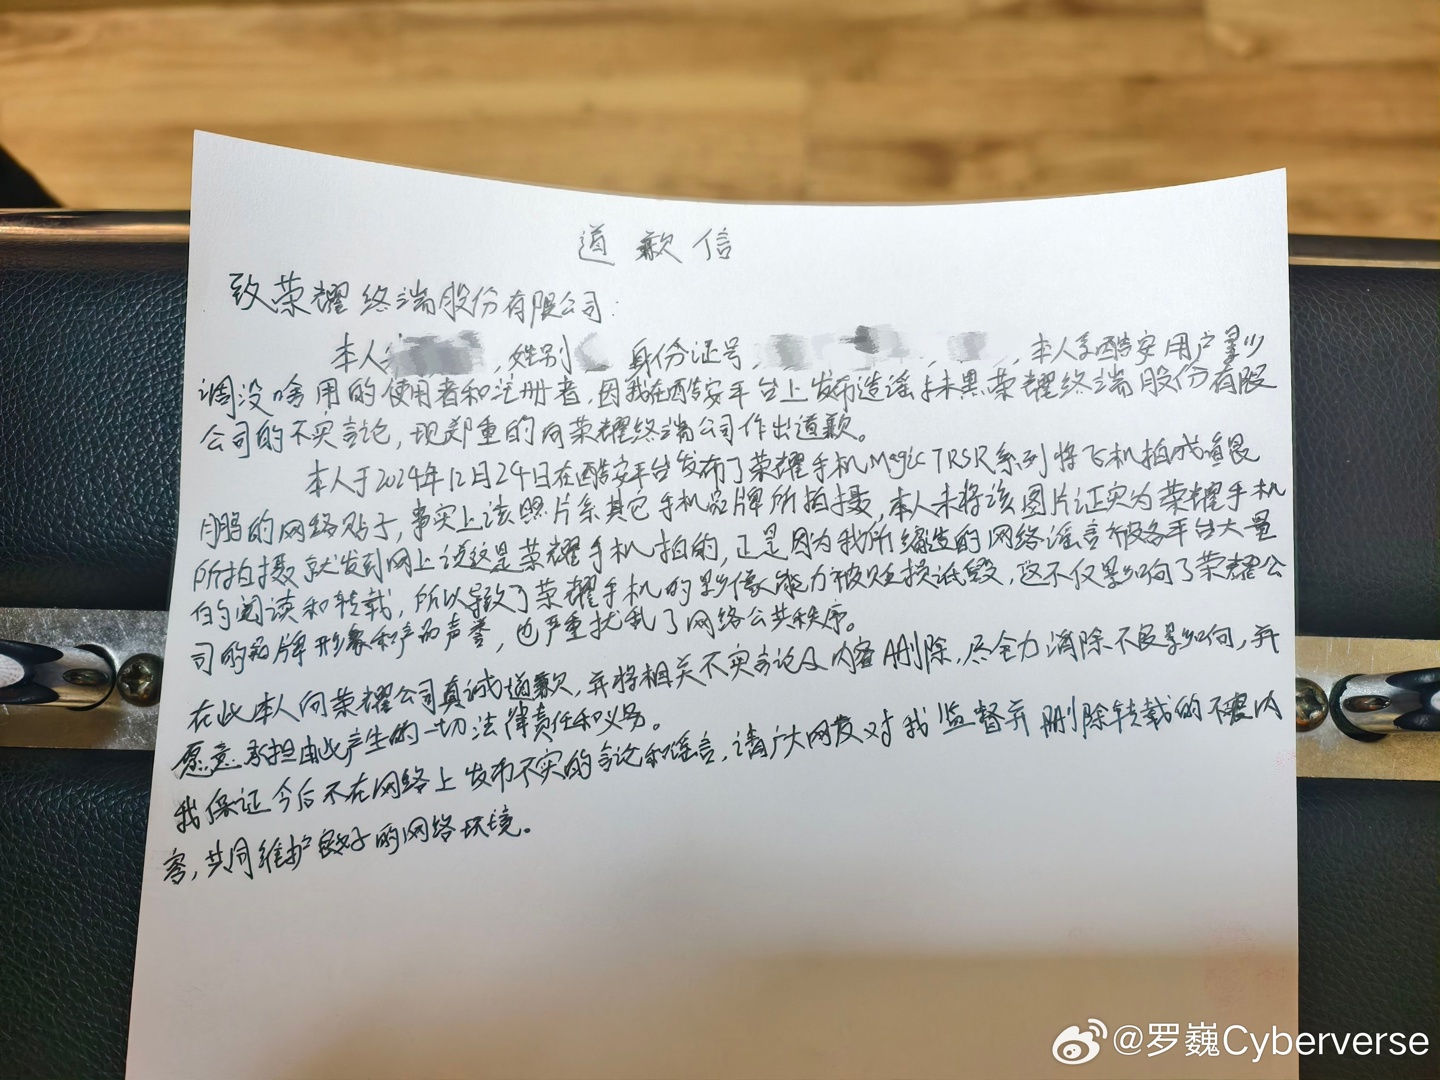 道歉信
致荣耀终端股份有限公司：
本人，姓别，身份证号，，本人系酷安用户影少
调没啥用的使用者和注册者，因我在酷安平台上发布造谣抹黑荣耀终端股份有限
公司的不实言论，现郑重的向荣耀终端公司作出道歉。
本人于2024年12月24日在酷安平台发布了荣耀手机Magic7RSR系列将飞机拍成道恩
的网络贴子，事实上该照片系其它手机品牌所拍摄，本人未将该图片证实为荣耀手机
所拍摄就发到网上说这是荣耀手机拍的，正是因为我所编造的网络谣言被各平台大量
的阅读和转载，所以导致了荣耀手机的影像能力被贬损诋毁，这不仅影响了荣耀公
司的品牌形象和产品声誉，也严重扰乱了网络公共秩序。
在此本人向荣耀公司真诚道歉，并将相关不实言论及内容删除，尽全力消除不良影响，并
愿意承担由此产生的一切法律责任和义务。
我保证今后不在网络上发布不实的言论和谣言，请广大网友对我监督并删除转载的不良内
容，共同维护良好的网络环境。
@罗巍Cyberverse